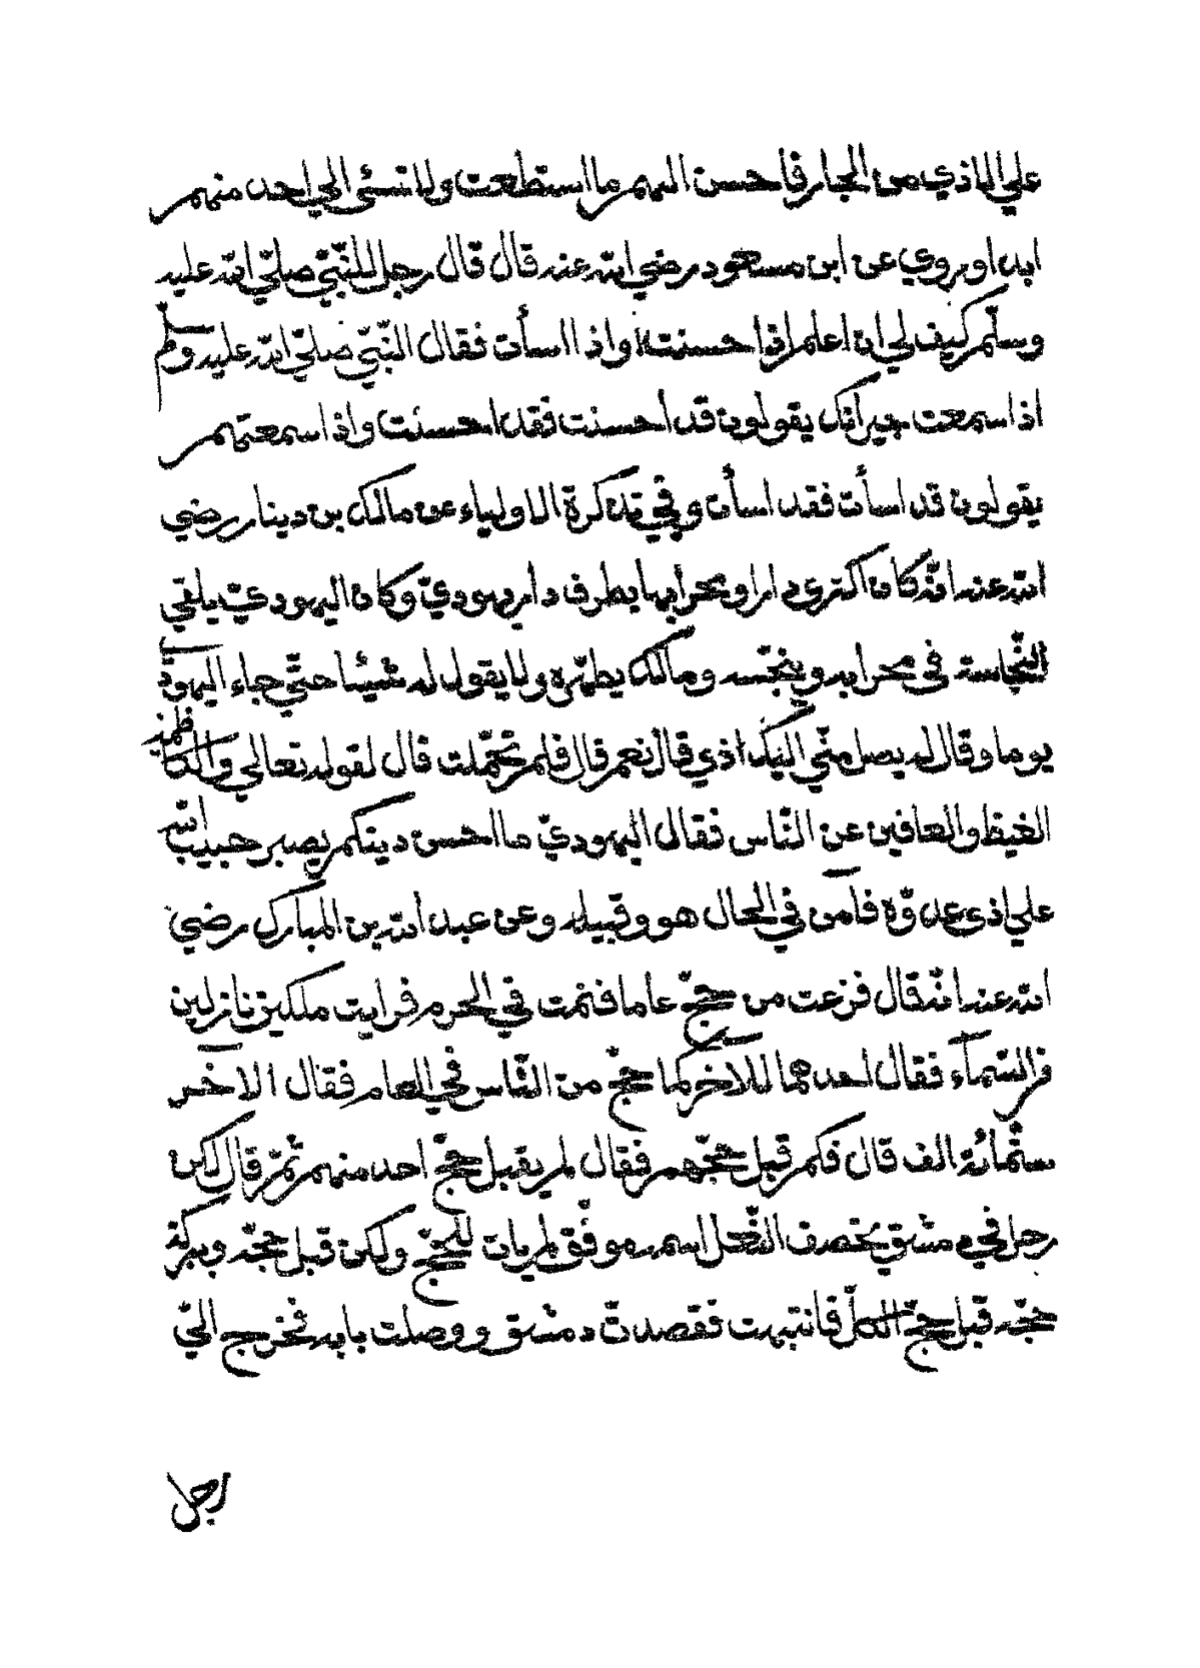 علي الاذي من الجار فاحسن اليهم ما استطعت ولا تسئي الي احد منهم
ابدا وروي عن ابن مسعود رضي الله عنه قال قال رجل للنّبيّ صلّي الله عليه
وسلّم كيف لي ان اعلم اذا احسنت واذا اسأت فقال النّبيّ صلّي الله عليه وسلّم
اذا سمعت جيرانك يقولون قد أحسنت فقد احسنت واذا سمعتهم
يقولون قد اسأت فقد اسأت وفي تذكرة الاولياء عن مالك بن دينار رضي
الله عنه انّه كان اكتري دارا ومحرابها بطرف دار يهوديّ وكان اليهوديّ يلقي
النّجاسة في محرابه وينجّسه ومالك يطهّره ولا يقول له شيئا حتّي جاء اليهوديّ
يوما وقال له يصل منّي اليك اذي قال نعم قال فلم تحمّلت قال لقوله تعالي والكاظمين
الغيظ والعافين عن النّاس فقال اليهوديّ ما احسن دينكم يصبر حبيب الله
علي اذي عدوّه فآمن في الحال هو وقبيله وعن عبد الله بن المبارك رضي
الله عنه انّه قال فرغت من حجّ عاما فنمت في الحرم فرايت ملكين نازلين
من السّمآء فقال احدهما للآخر كم حجّ من النّاس في العام فقال الآخر
ستّمائة الف قال فكم قبل حجّهم فقال لم يقبل حجّ احد منهم ثمّ قال لكن
رجل في دمشق يخصف النّعل اسمه موفّق لم يات للحجّ ولكن قبل حجّه وببركة
حجّه قبل حجّ الكلّ فانتبهت فقصدت دمشق ووصلت بابه فخرج اليّ
رجل